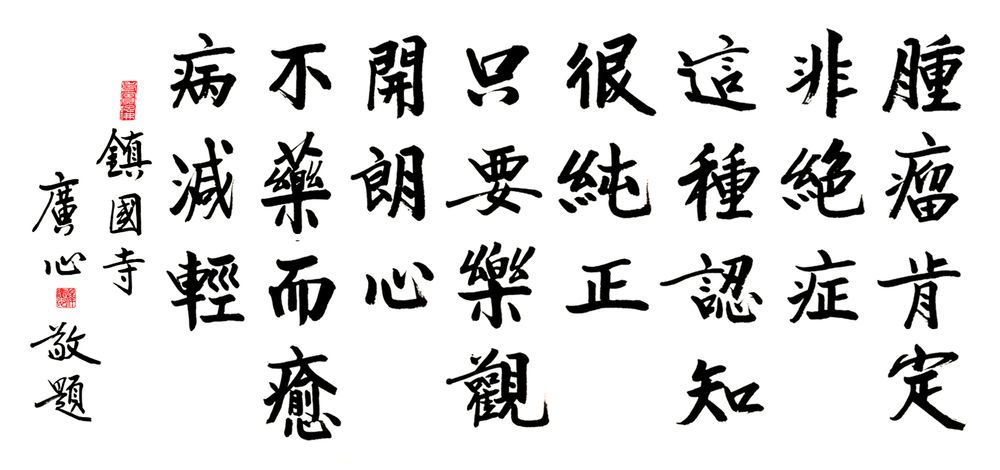 腫瘤肯定
非絕症
這種認知
很純正
只要樂觀
開朗心
不藥而癒
病減輕
鎮國寺
廣心敬題